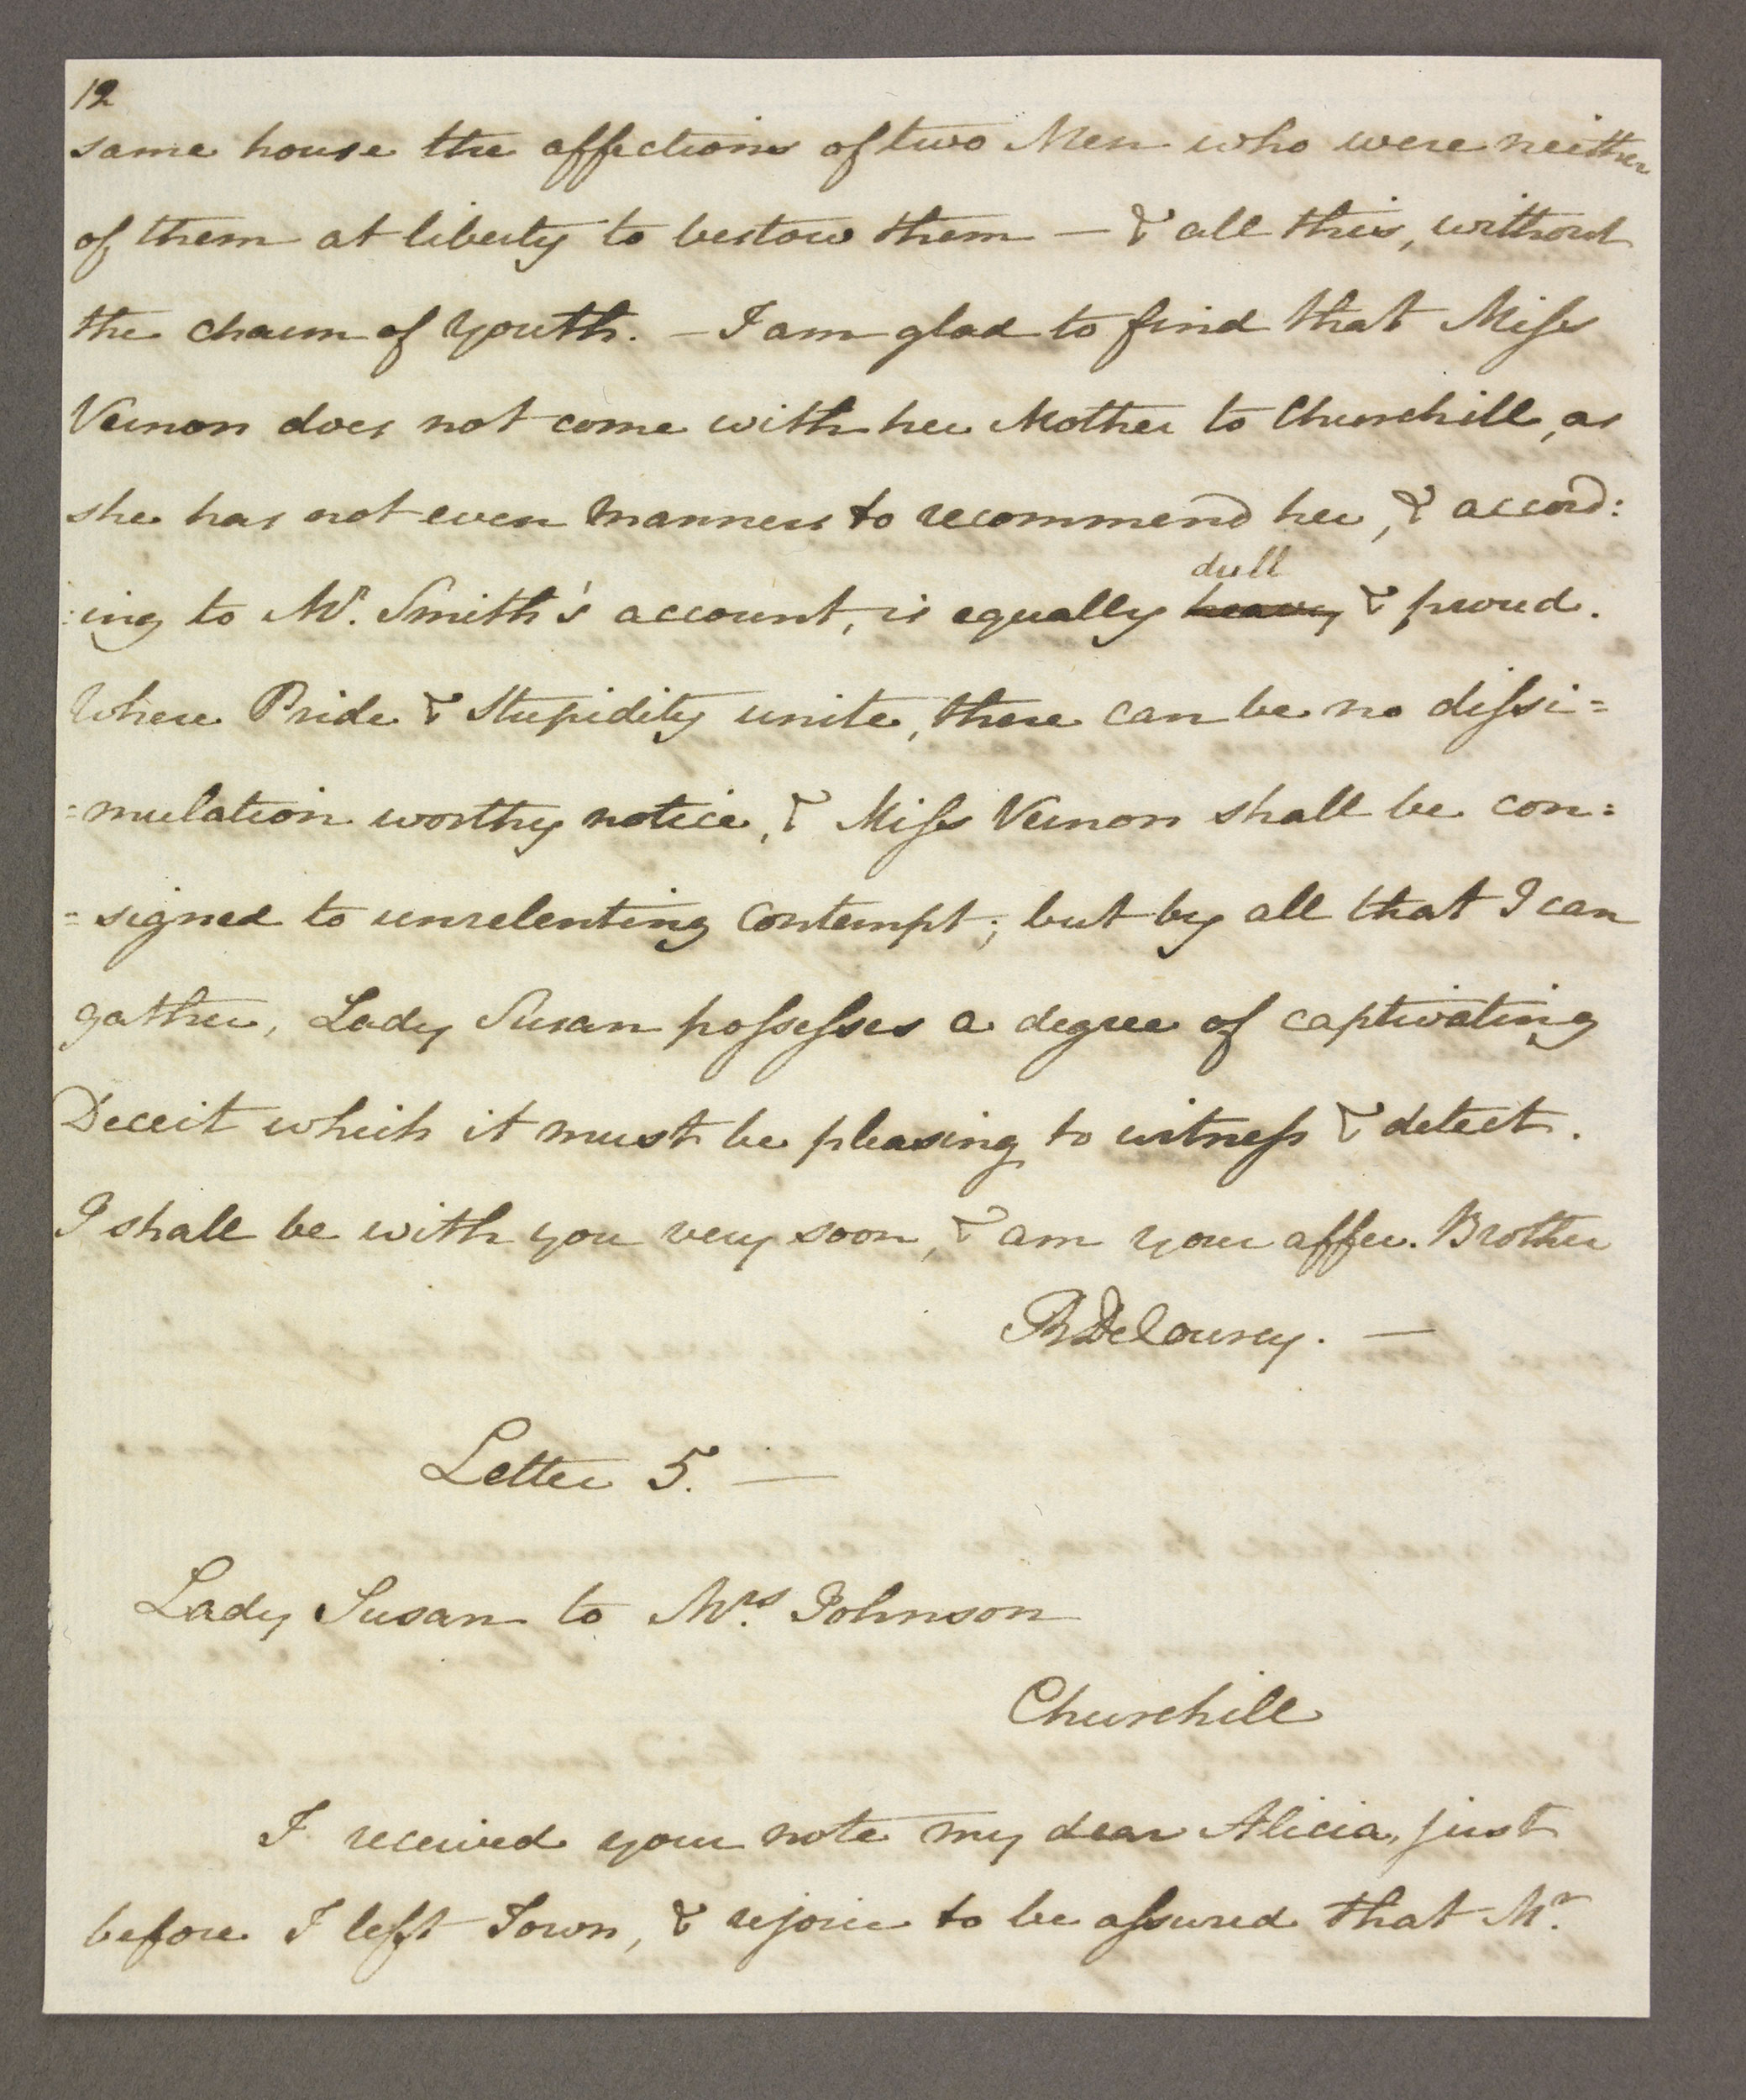 12
same house the affections of two Men who were neither
of them at liberty to bestow them — & all this, without
the charm of Youth. — I am glad to find that Miss
Vernon does not come with her Mother to Churchill, as
she has not even Manners to recommend her, & accord:
:ing to Mr. Smith's account, is equally heavy dull & proud.
Where Pride & Stupidity unite, there can be no dissi=
=mulation worthy notice, & Miss Vernon shall be con=
=signed to unrelenting contempt; but by all that I can
gather, Lady Susan possesses a degree of captivating
Deceit which it must be pleasing to witness & detect.
I shall be with you very soon, & am your affec. Brother
R DeCourcy. —
Letter 5. —
Lady Susan to Mrs. Johnson
Churchill
I received your note my dear Alicia, just
before I left Town, & rejoice to be assured that Mr.